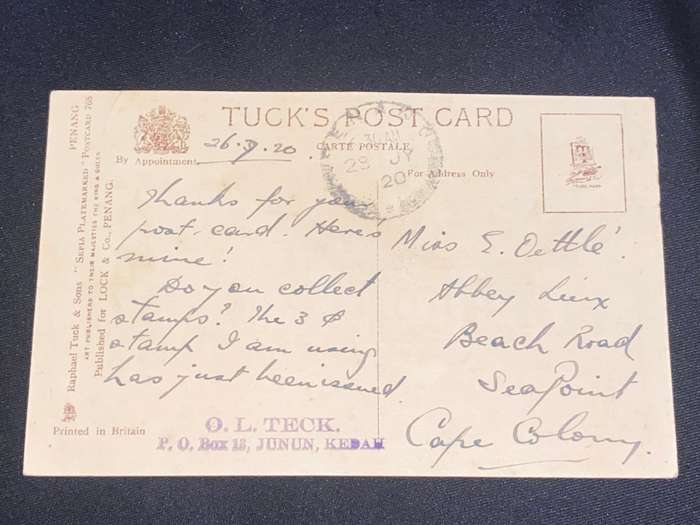 TUCK'S POST CARD
CARTE POSTALE
By Appointment
26.9.20
30 AM
29 JY
20
For Address Only
PENANG
Raphael Tuck & Sons "SEPIA PLATEMARKED" POSTCARD 765
ART PUBLISHERS TO THEIR MAJESTIES THE KING & QUEEN
Published for LOCK & Co., PENANG.
Thanks for your
post-card. Here's
mine!
Do you collect
stamps? The 3 ¢
stamp I am using
has just been issued.
Miss E. Oettlé
Abbey
Beach Road
Sea Point
Cape Colony.
O. L. TECK.
P. O. Box 13, JUNUN, KEDAH
Printed in Britain